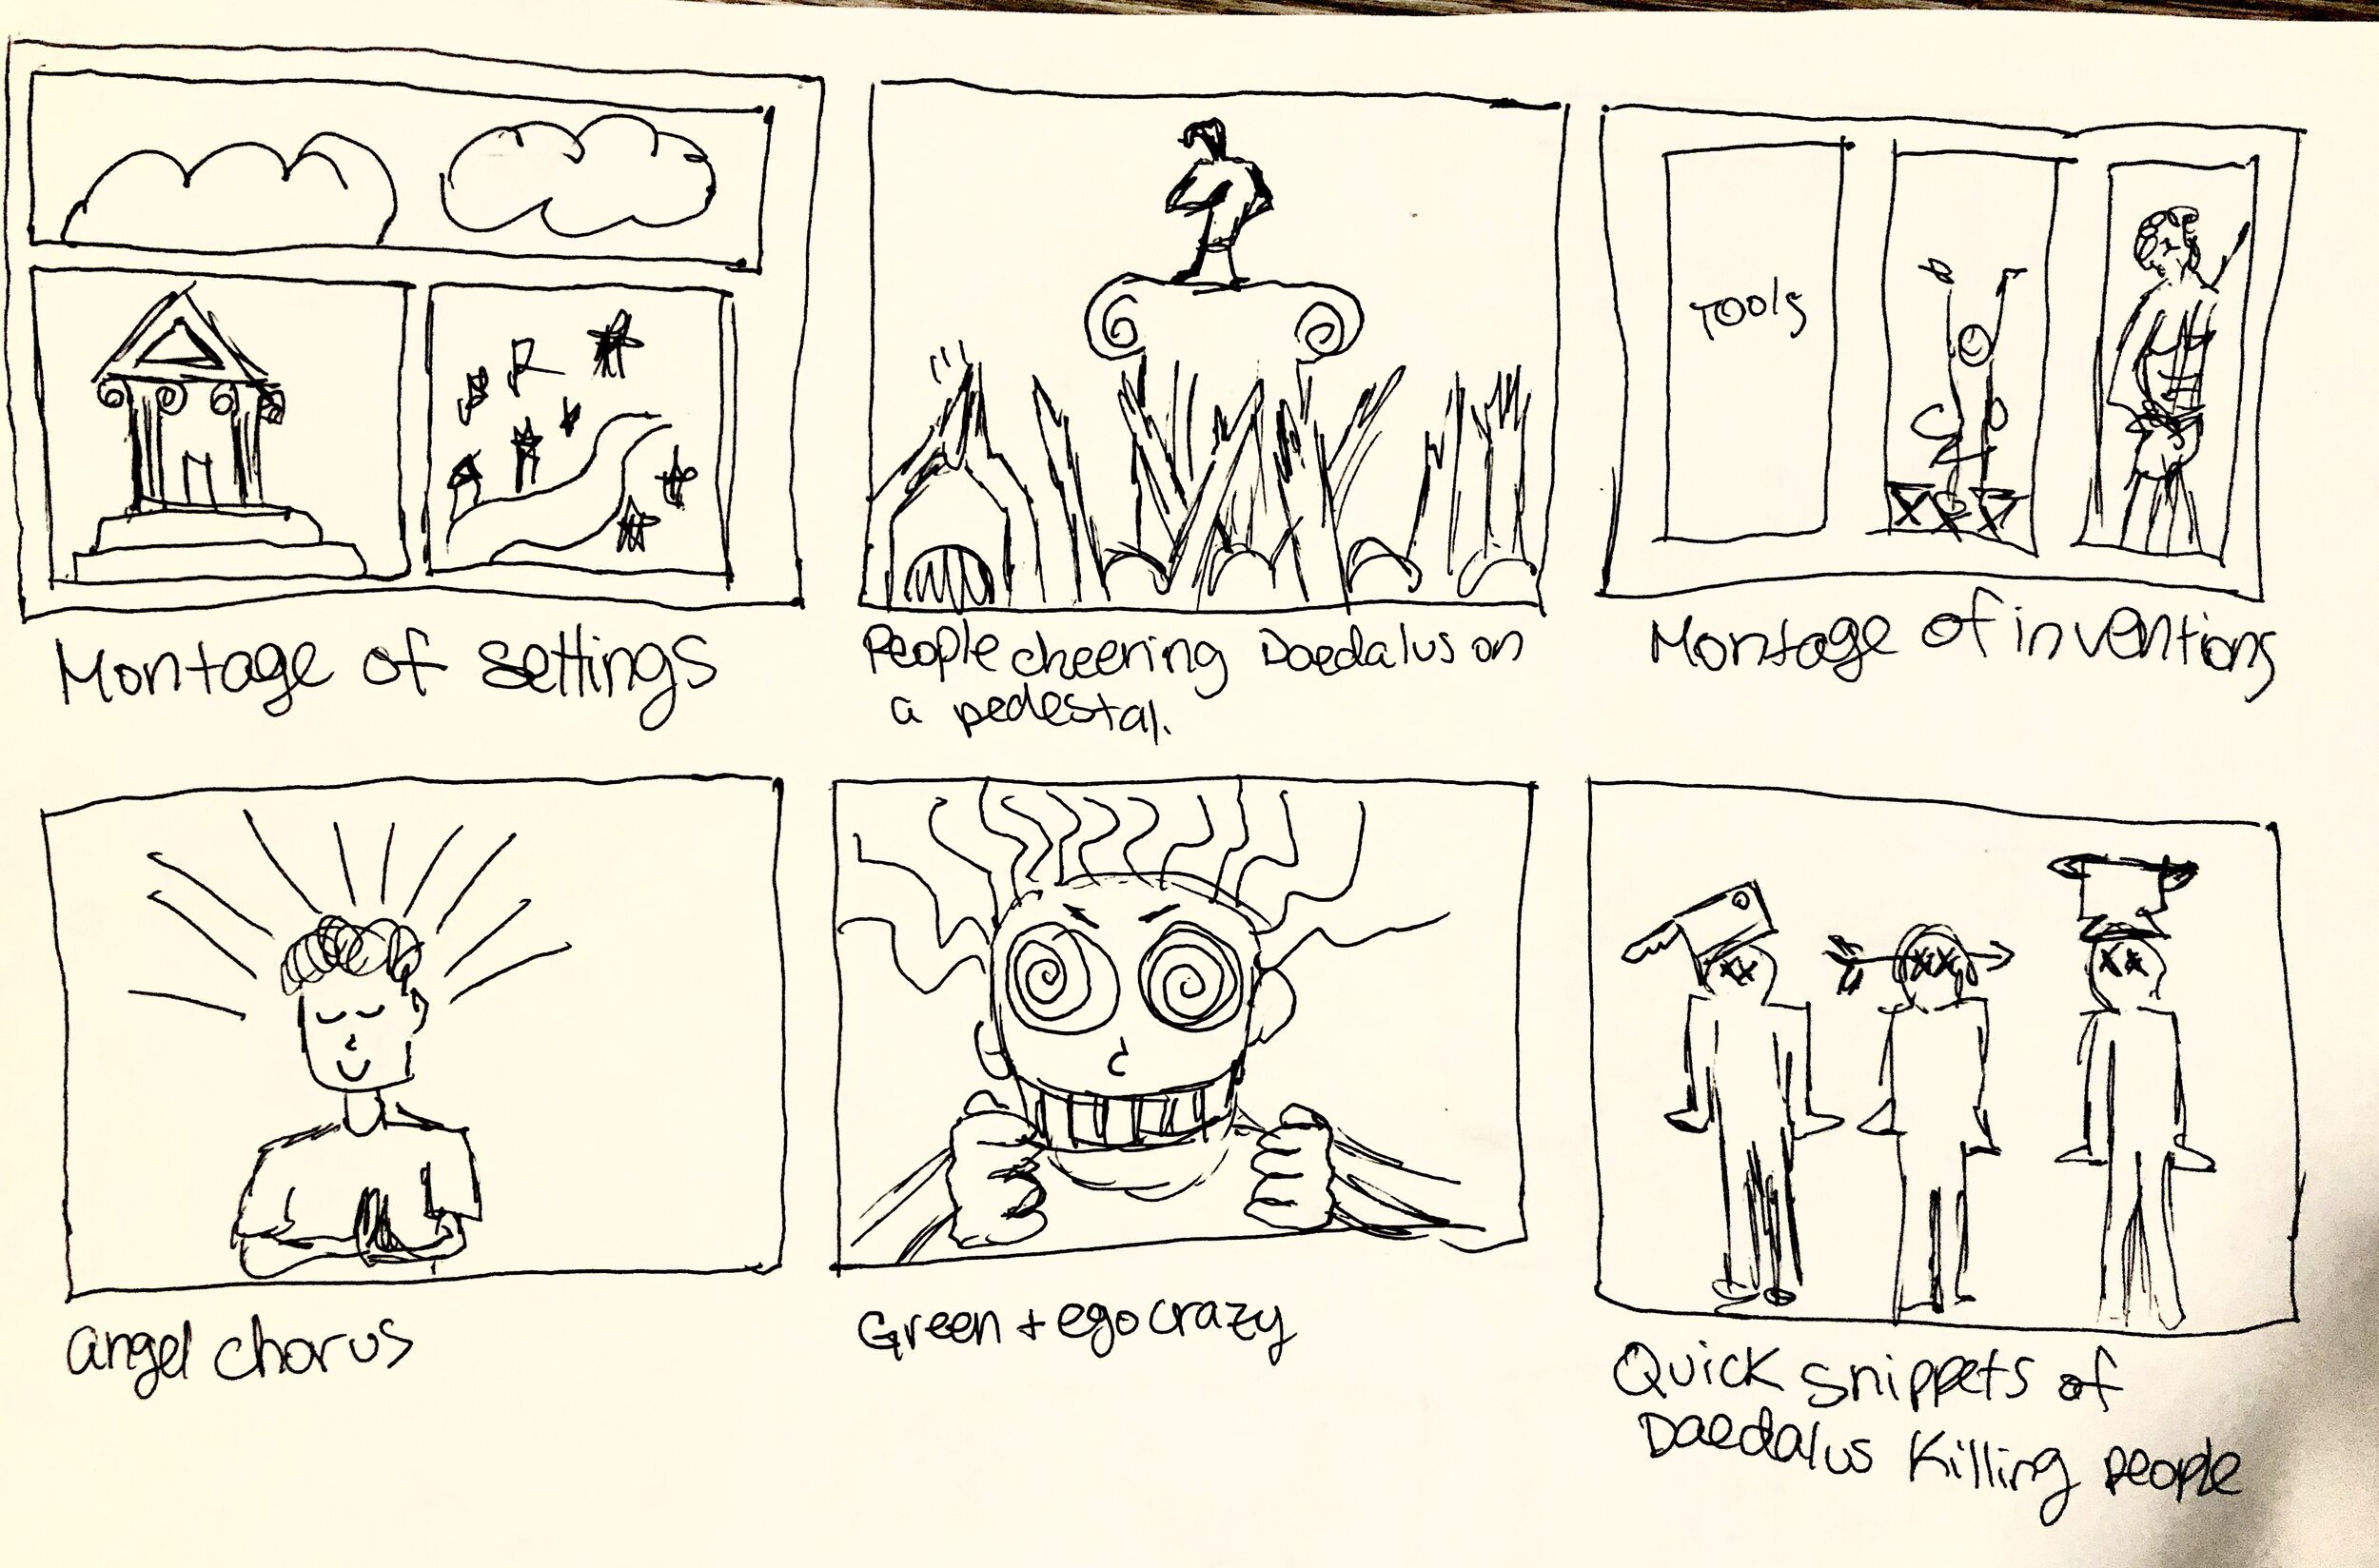 Tools
Montage of settings
People cheering Daedalus on
a pedestal.
Montage of inventions
angel chorus
Green + ego crazy
Quick snippets of
Daedalus Killing people